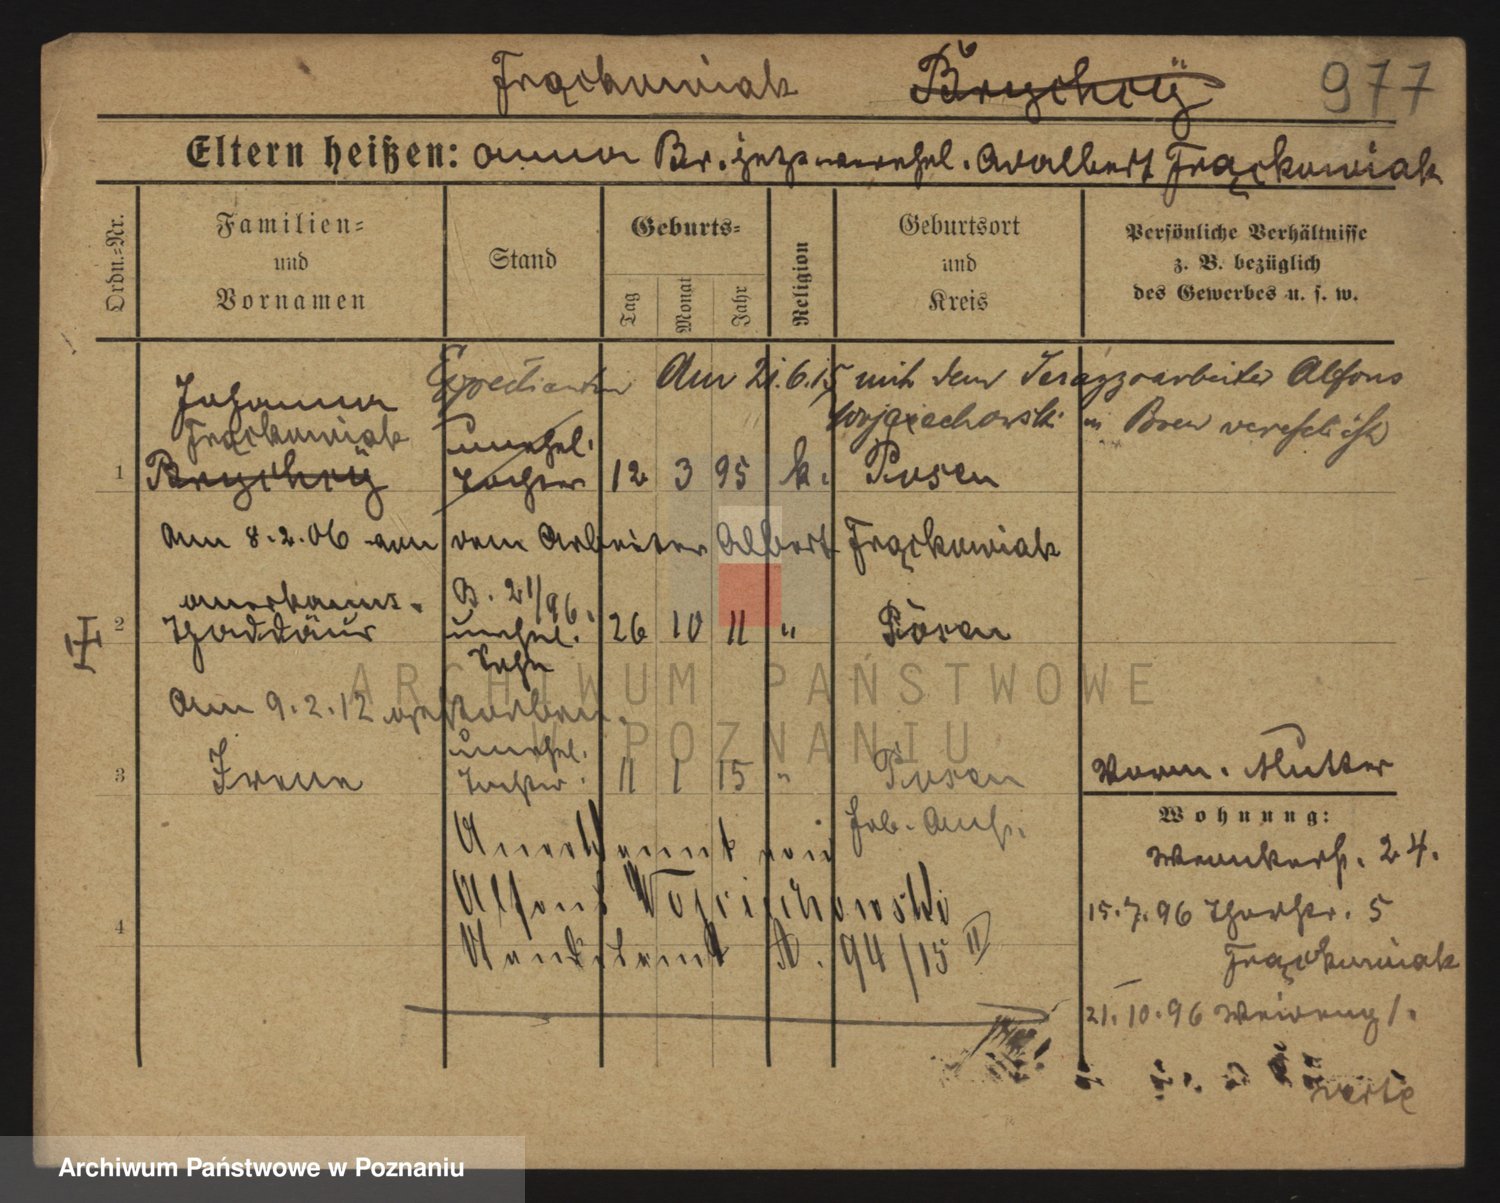 Frąckowiak Brychcÿ 977
Eltern heißen: Anna Br. jetzt verehel. Adalbert Frąckowiak
Ordn.-Nr.
Familien-
und
Vornamen
Stand
Geburts-
Tag
Monat
Jahr
Religion
Geburtsort
und
Kreis
Persönliche Verhältnisse
z. B. bezüglich
des Gewerbes u. s. w.
Expedientin Am 21.6.15 mit dem Terazzoarbeiter Alfons
Johanna
Wojciechowski in Bren verehelicht
Frąckowiak
unehel.
1 Brychcÿ Tochter 12 3 95 k. Posen
Am 8.2.06 von dem Arbeiter Albert Frąckowiak
anerkannt. B. 21/96.
2 Thaddäus unehel. 26 10 11 " Posen
Sohn
Am 9.2.12 gestorben.
unehel.
3 Irene Tochter. 11 1 15 " Posen
Vorm. Mutter
Geb. Ausk.
Wohnung:
Anerkannt von
24.
Alfons Wojciechowski
15.7.96 Thorstr. 5
4
Standesamt A. 94/15 II
Frąckowiak
21.10.96 1.
ARCHIWUM PAŃSTWOWE
W POZNANIU
Archiwum Państwowe w Poznaniu